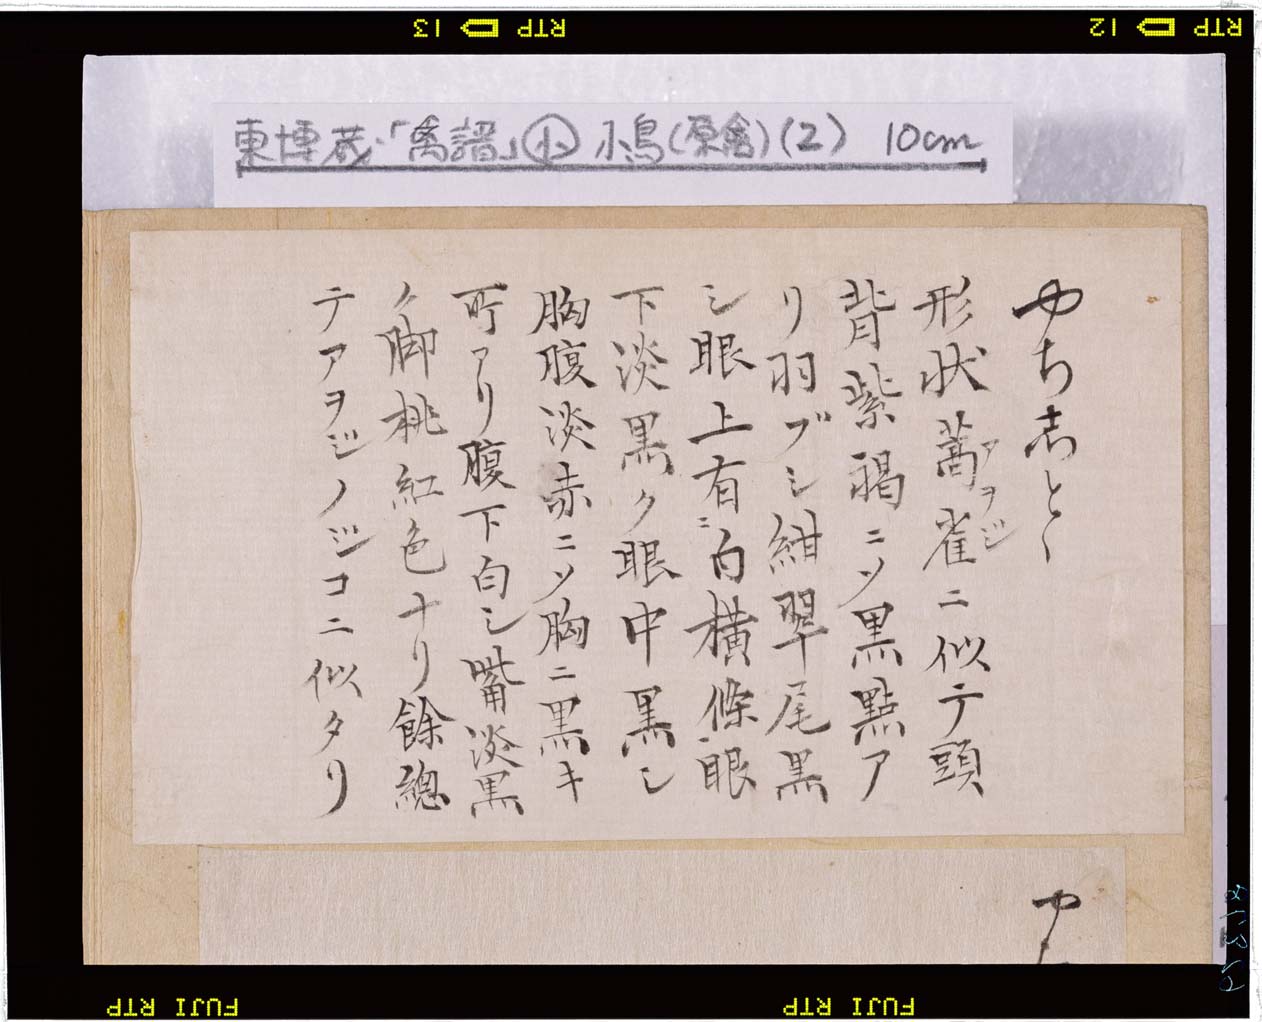 RTP 13
RTP 12
東博蔵・「禽譜」㊦小鳥(原禽)(2) 10cm
やち志とゝ
形状蒿雀ニ似テ頭
アヲジ
背紫褐ニソ黒點ア
リ羽ブシ紺翠尾黒
シ眼上有ニ白横條一眼
下淡黒ク眼中黒シ
胸腹淡赤ニソ胸ニ黒キ
所アリ腹下白シ嘴淡黒
ク脚桃紅色ナリ餘總
テアヲジノジコニ似タリ
や
FUJI RTP
FUJI RTP